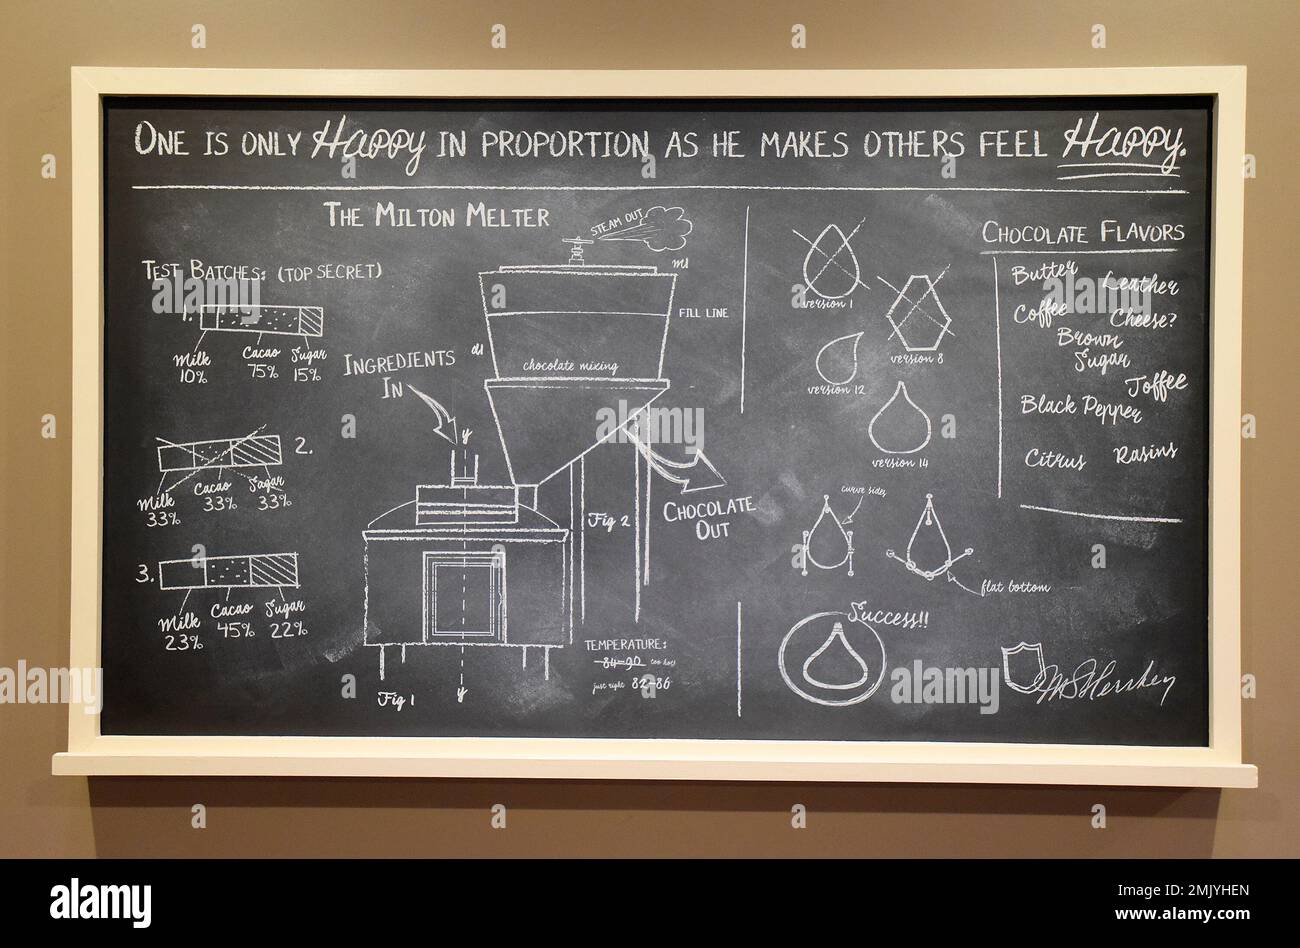 ONE IS ONLY Happy IN PROPORTION AS HE MAKES OTHERS FEEL Happy.
THE MILTON MELTER
TEST BATCHES: (TOP SECRET)
1.
Milk
10%
Cacao
75%
Sugar
15%
2.
Milk
33%
Cacao
33%
Sugar
33%
3.
Milk
23%
Cacao
45%
Sugar
22%
STEAM OUT
FILL LINE
chocolate mixing
INGREDIENTS
IN
y
y
Fig 1
Fig 2
CHOCOLATE
OUT
TEMPERATURE:
84-90 too hot!
just right 82-86
version 1
version 8
version 12
version 14
curve sides
flat bottom
Success!!
CHOCOLATE FLAVORS
Butter
Leather
Coffee
Cheese?
Brown
Sugar
Toffee
Black Pepper
Citrus
Rasins
MSHershey
a
alamy
Image ID: 2MJYHEN
www.alamy.com